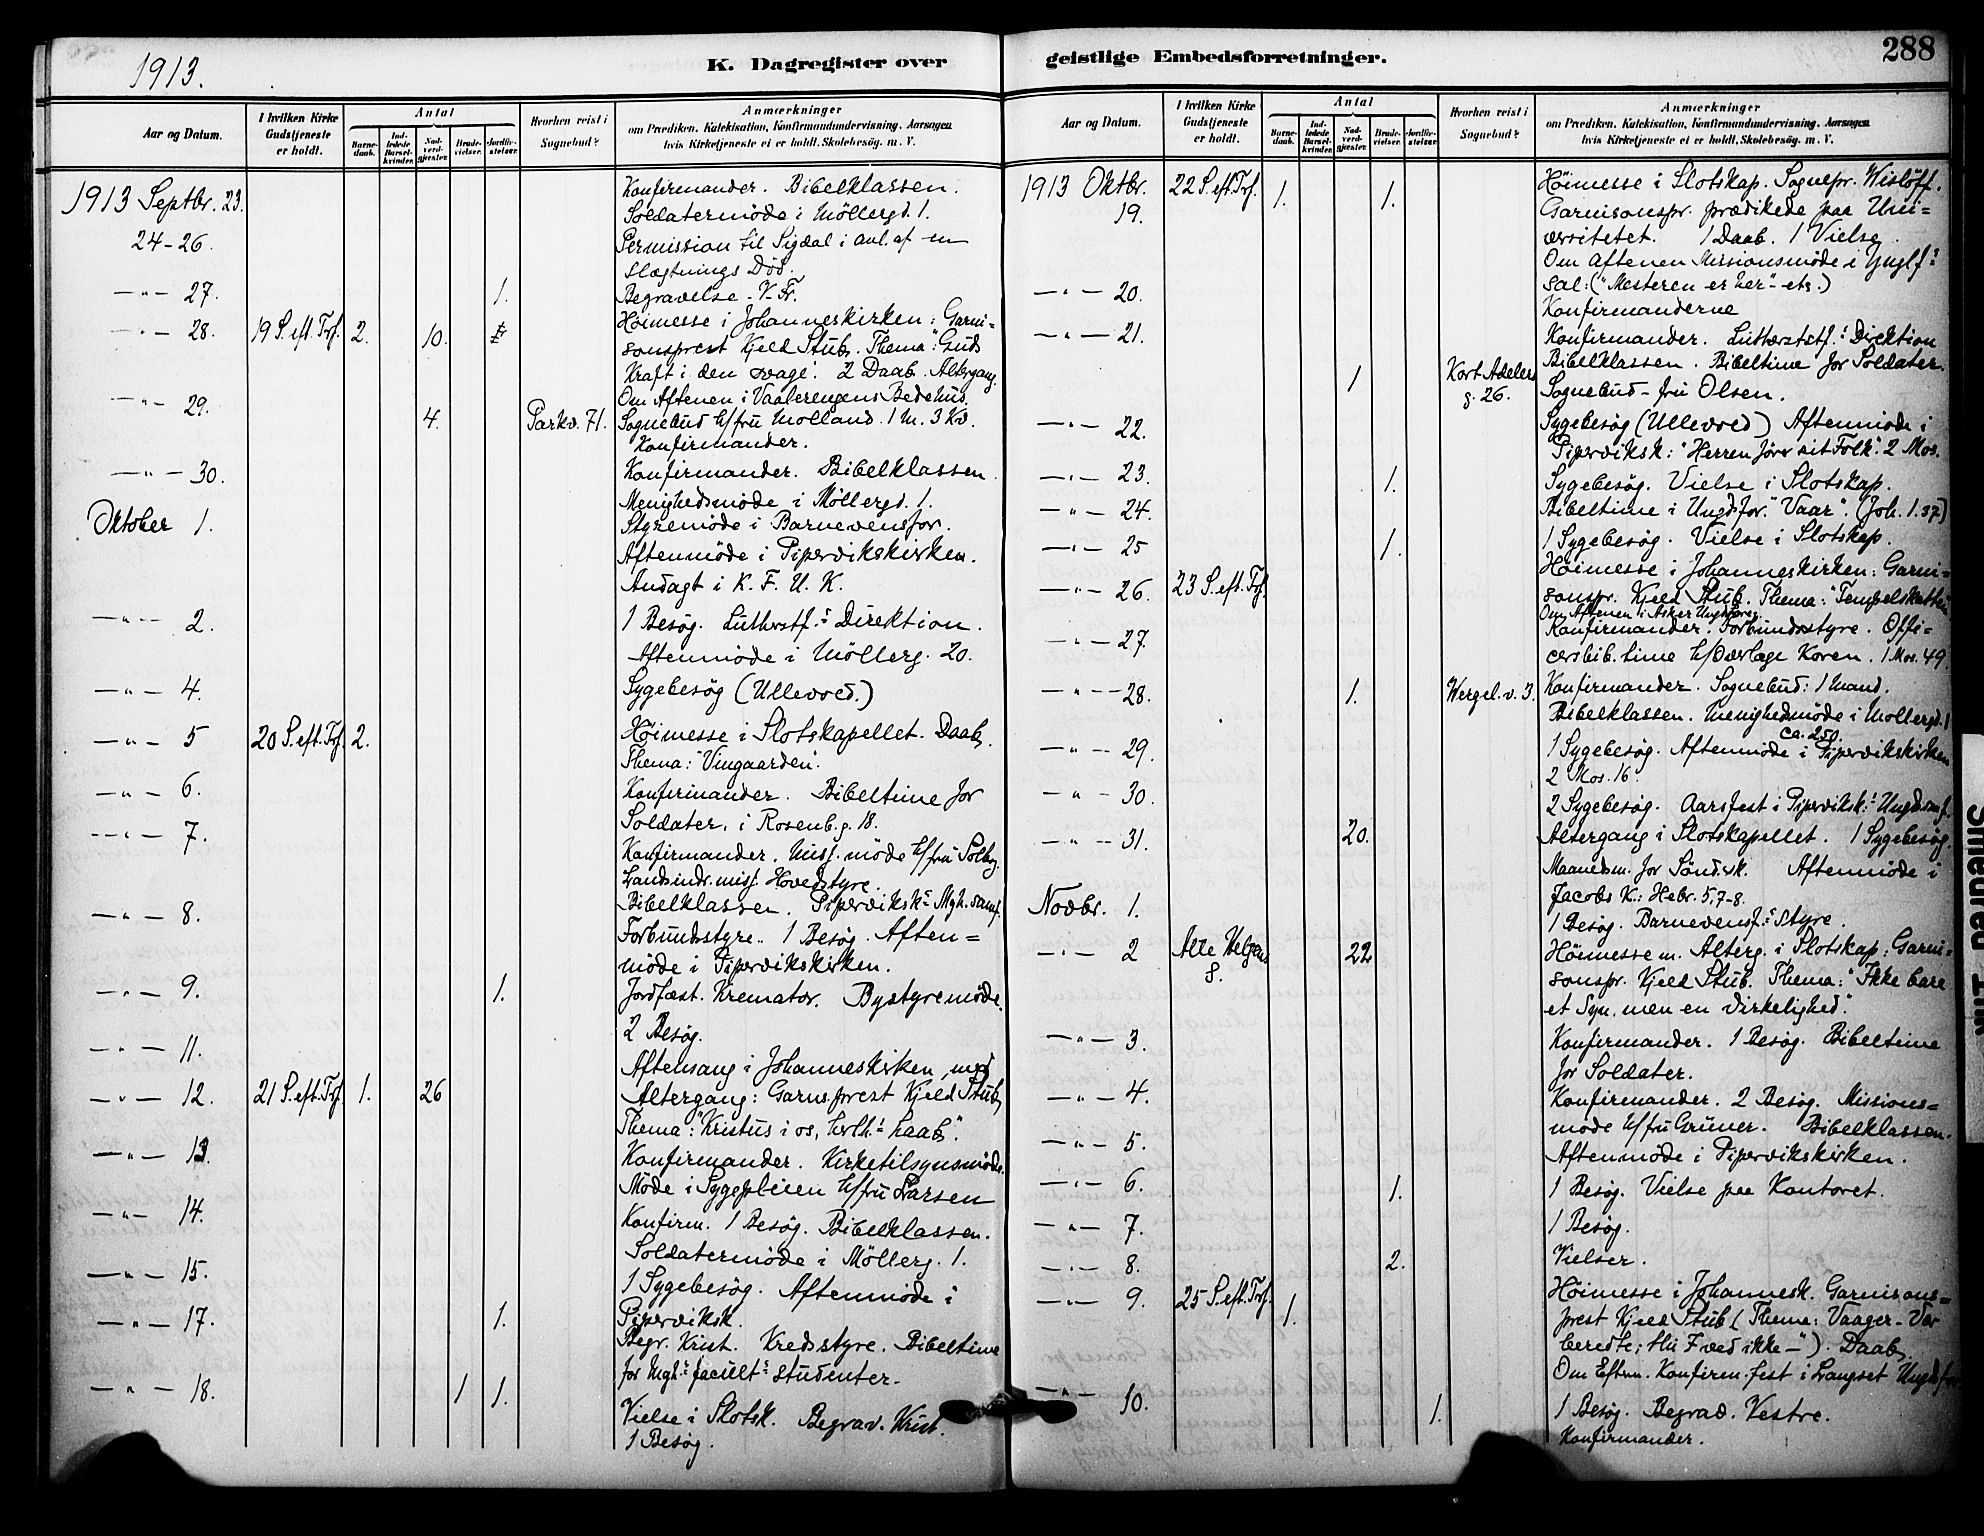 1913.
K. Dagregister over
Aar og Datum.
I hvilken Kirke Gudstjeneste er holdt.
Antal
Barne-daab.
Ind-ledede Barsel-kvinder.
Nad-verd-gjester.
Brude-vielser.
Jordfæ-stelser.
Hvorhen reist i Sognebud?
Anmærkninger
om Prædiken, Katekisation, Konfirmandundervisning, Aarsagen
hvis Kirketjeneste ei er holdt, Skolebesøg. m. V.
1913 Septbr. 23. Konfirmander. Bibelklassen.
Soldatermöde i Möllergd. 1.
24-26. Permission til Sigdal i anl. af en
slægtnings Död.
—"— 27. 1. Begravelse - V. Fr.
—"— 28. 19 S. eft. Trf. 2. 10. Höimesse i Johanneskirken: Garni=
sonsprest Kjeld Stub. Thema: "Guds
Kraft i den svage". 2 Daab. Altergang.
Om Aftenen i Vaalerengens Bedehus.
—"— 29. 4. Parkv. 71. Sognebud h/fru Molland. 1 M. 3 Kv.
Konfirmander.
—"— 30. Konfirmander. Bibelklassen.
Menighedsmöde i Möllergd. 1.
Oktober 1. Styremöde i Barnevensfor.
Aftenmöde i Pipervikskirken.
Andagt i K. F. U. K.
—"— 2. 1 Besög. Lutherstf.s Direktion.
Aftenmöde i Möllerg. 20.
—"— 4. Sygebesög (Ullevold.)
—"— 5 20 S. eft. Trf. 2. Höimesse i Slotskapellet. Daab.
Thema: "Vingaarden".
—"— 6. Konfirmander. Bibeltime for
Soldater, i Rosenb.g. 18.
—"— 7. Konfirmander. Miss. möde h/fru Solberg.
Landsindr. miss. Hovedstyre.
Bibelklassen. Piperviksk.s Mgh. samf.
—"— 8. Forbundsstyre. 1 Besög. Aften=
möde i Pipervikskirken.
—"— 9. 1. Jordfæst. Kremator. Bystyremöde.
2 Besög.
—"— 11. Aftensang i Johanneskirken med
—"— 12. 21 S. eft. Trf. 1. 26 Altergang: Garns.prest Kjeld Stub.
Thema: "Kristus i os, herlh.s haab".
—"— 13. Konfirmander. Kirketilsynsmöde.
Möde i Sygepleien h/fru Larsen
—"— 14. Konfirm. 1 Besög. Bibelklassen.
Soldatermöde i Möllerg. 1.
—"— 15. 1 Sygebesög. Aftenmöde i
Piperviksk.
—"— 17. 1. Begr. Krist. Kredsstyre. Bibeltime
for Mgh.s facult.s studenter.
—"— 18. 1 1. Vielse i Slotsk. Begrav. Krist.
1 Besög.
geistlige Embedsforretninger.
288
Aar og Datum.
I hvilken Kirke Gudstjeneste er holdt.
Antal
Barne-daab.
Ind-ledede Barsel-kvinder.
Nad-verd-gjester.
Brude-vielser.
Jordfæ-stelser.
Hvorhen reist i Sognebud?
Anmærkninger
om Prædiken, Katekisation, Konfirmandundervisning, Aarsagen
hvis Kirketjeneste ei er holdt, Skolebesøg. m. V.
1913 Oktbr. 19. 22 S. eft. Trf. 1. 1. Höimesse i Slotskap. Sognepr. Wislöff.
Garnisonspr. prædikede paa Uni=
versitetet. 1 Daab. 1 Vielse.
Om Aftenen Missionsmöde i Ynglf.s
Sal: ("Mesteren er her" - etc.)
—"— 20. Konfirmanderne
—"— 21. Konfirmander. Lutherstf.s Direktion
Bibelklassen. Bibeltime for Soldater.
1 Kort Adelers g. 26. Sognebud - fru Olsen.
—"— 22. Sygebesög (Ullevold) Aftenmöde i
Piperviksk: "Herren förer sit Folk". 2 Mos.
—"— 23. 1. Sygebesög. Vielse i Slotskap.
—"— 24. Bibeltime i Ungdsfor. "Vaar". (Joh. 1.37)
—"— 25 1. 1 Sygebesög. Vielse i Slotskap.
—"— 26. 23 S. eft. Trf. Höimesse i Johanneskirken: Garni=
sonspr. Kjeld Stub. Thema: "Tempelskatten
Om Aftenen i Asker Ungdfore.
—"— 27. Konfirmander. Forbundsstyre. Offi=
cersbib. time h/Overlæge Koren. 1 Mos. 49.
—"— 28. 1. Wergel. v. 3. Konfirmander. Sognebud: 1 Mand.
Bibelklassen. Menighedmöde i Möllergd. 1
ca. 250.
—"— 29. 1 Sygebesög. Aftenmöde i Pipervikskirken
2 Mos. 16
—"— 30. 2 Sygebesög. Aarsfest i Piperviksk.s Ungdomsf.
—"— 31. 20. Altergang i Slotskapellet. 1 Sygebesög.
Maanedsm. for Söndsk. Aftenmöde i
Jacobs K.: Hebr. 5,7-8.
Novbr. 1. 1 Besög. Barnevensf.s Styre.
—"— 2 Alle Helgens S. 22 Höimesse m. Alterg. i Slotskap: Garni=
sonspr. Kjeld Stub. Thema: "Ikke bare
et Syn, men en Virkelighed".
—"— 3. Konfirmander. 1 Besög. Bibeltime
for Soldater.
—"— 4. Konfirmander. 2 Besög. Missions=
möde h/fru Grüner. Bibelklassen.
—"— 5. Aftenmöde i Pipervikskirken.
—"— 6. 1. 1 Besög. Vielse paa Kontoret.
—"— 7. 1 Besög.
—"— 8. 2. Vielser.
—"— 9. 25 S. eft. Trf. 1. Höimesse i Johannesk. Garnisons=
prest Kjeld Stub (Thema: Vaager - Vær
beredte; thi I ved ikke -") Daab.
Om Eftm. Konfirm. fest i Langset Ungdsf.
—"— 10. 1. 1 Besög. Begrav. Vestre.
Konfirmander.